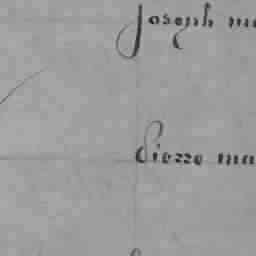 joseph ma
Pierre ma